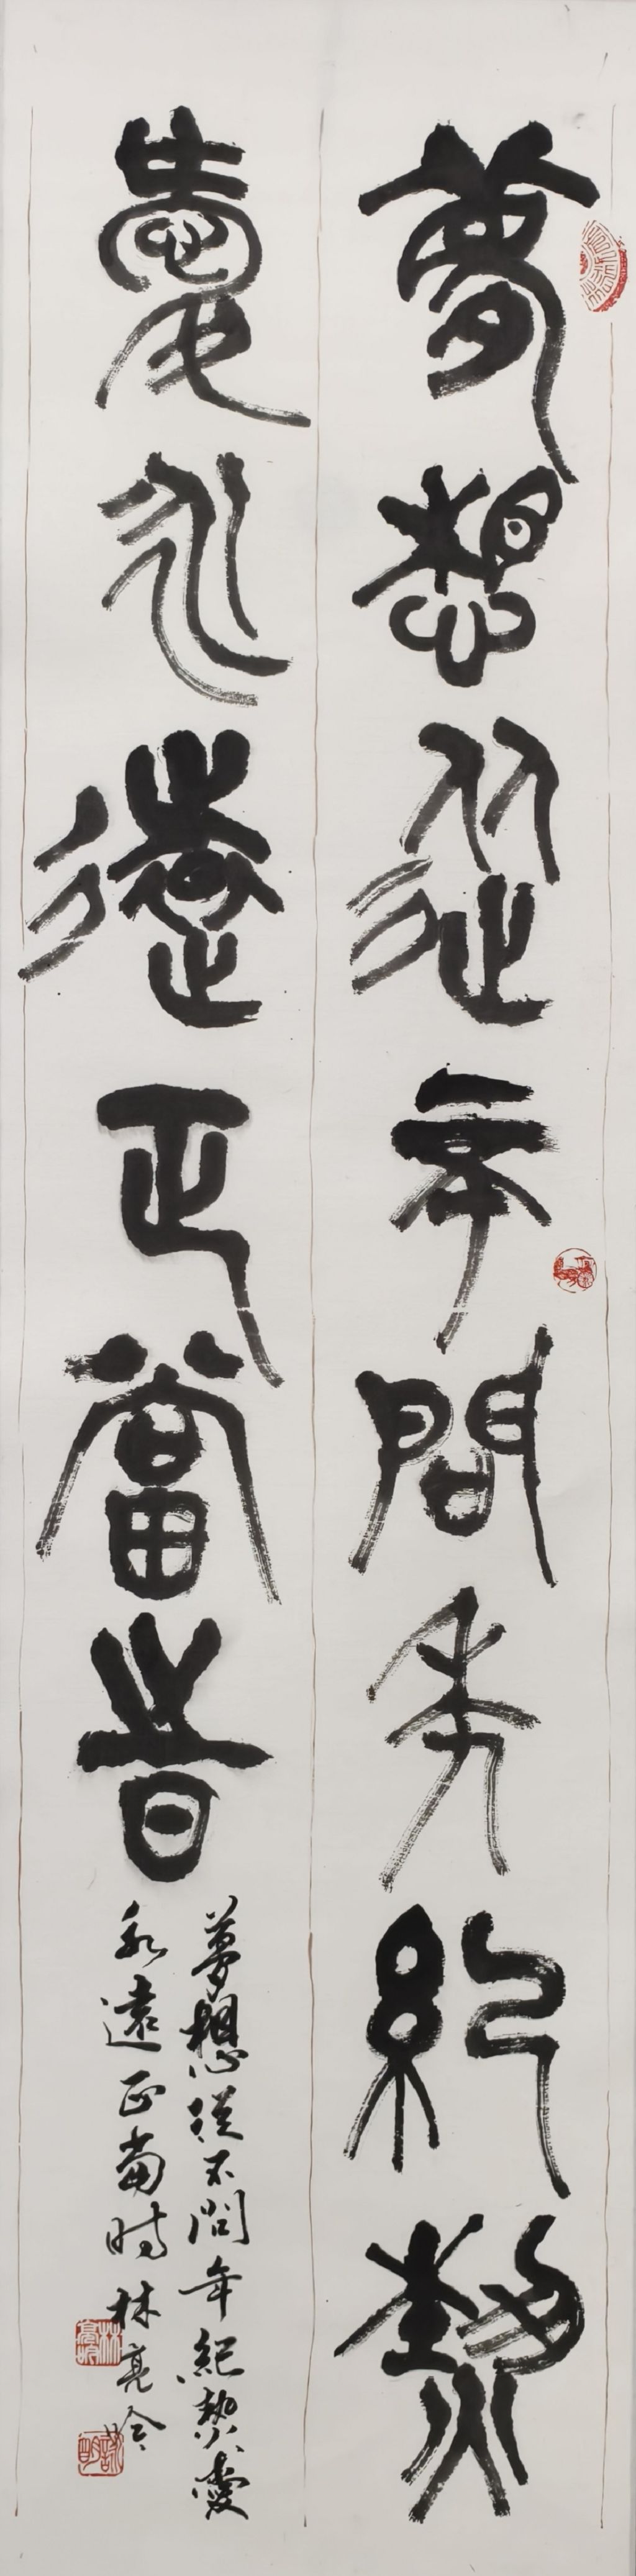 夢想從不問年紀熱
愛永遠正當時
夢想從不問年紀熱愛
永遠正當時 林亮吟